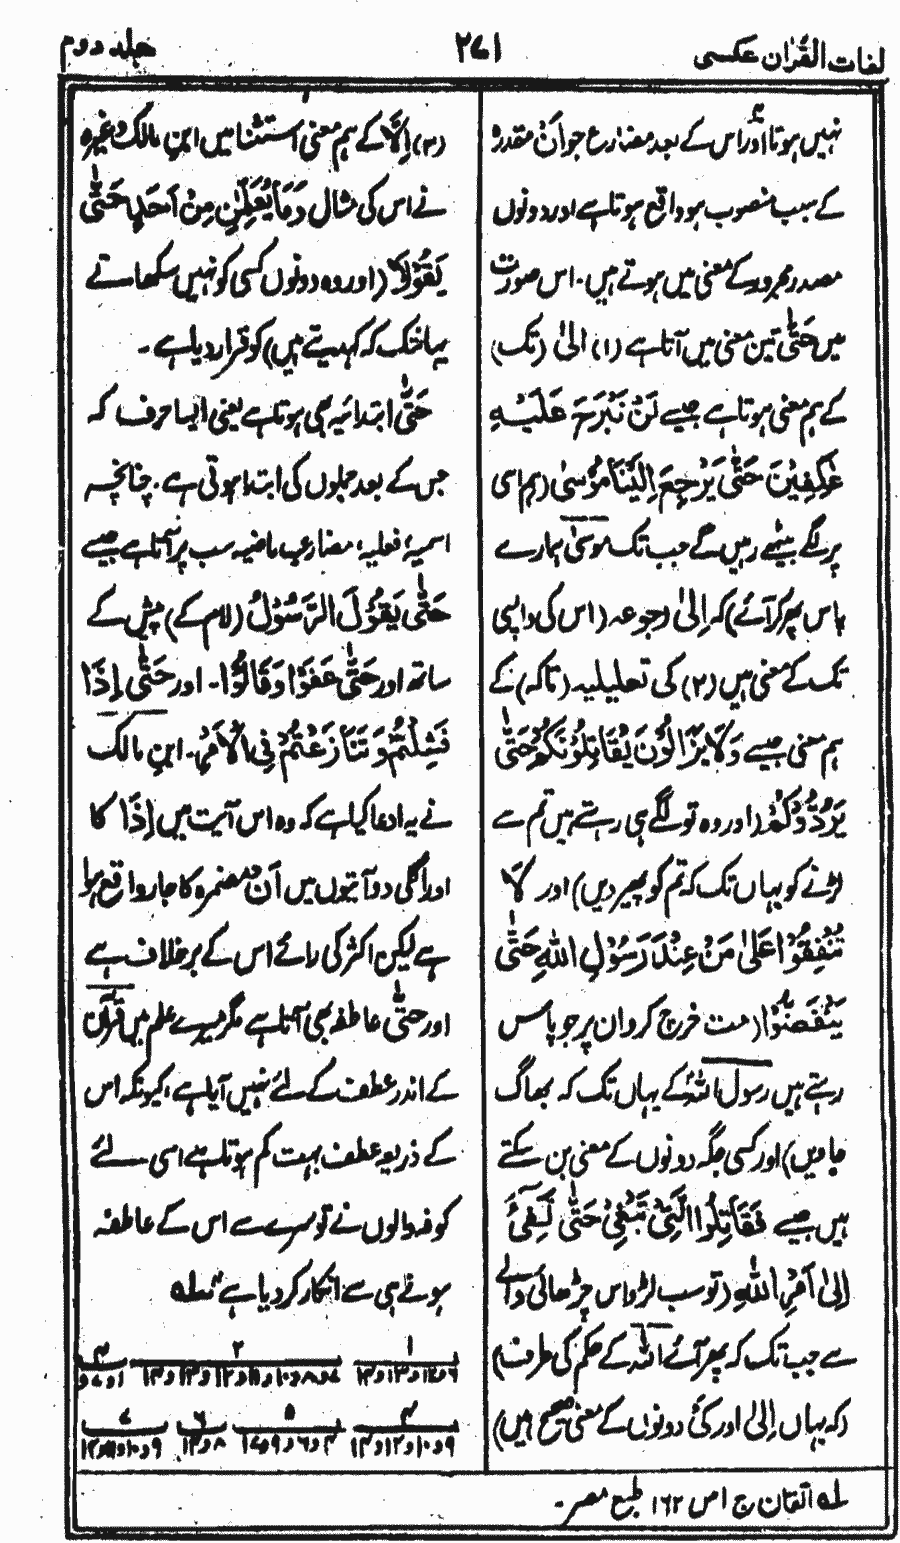 لغات القرآن عکسی
۲۷۱
جلد دوم
نہیں ہوتا اور اس کے بعد مضارع جو اَنْ مقدرہ
کے سبب منصوب ہو واقع ہوتا ہے اور دونوں
مصدر مجرور کے معنی میں ہوتے ہیں۔ اس صورت
میں حَتّٰی تین معنی میں آتا ہے (۱) الیٰ (تک)
کے ہم معنی ہوتا ہے جیسے لَنْ نَّبْرَحَ عَلَیْہِ
عٰکِفِیْنَ حَتّٰی یَرْجِعَ اِلَیْنَا مُوْسٰی (ہم اسی
پر لگے بیٹھے رہیں گے جب تک موسیٰ ہمارے
پاس پھر کر آئے) کہ اِلیٰ رجوعہ (اس کی واپسی
تک کے معنی ہیں (۲) کی تعلیلیہ (تاکہ) کے
ہم معنی جیسے وَلَا یَزَالُوْنَ یُقَاتِلُوْنَکُمْ حَتّٰی
یَرُدُّوْکُمْ (اور وہ تو لگے ہی رہتے ہیں تم سے
لڑنے کو یہاں تک کہ تم کو پھیر دیں) اور لَا
تُنْفِقُوْا عَلٰی مَنْ عِنْدَ رَسُوْلِ اللّٰہِ حَتّٰی
یَنْفَضُّوْا (مت خرچ کرو ان پر جو پاس
رہتے ہیں رسول اللہ کے یہاں تک کہ بھاگ
جاویں) اور کسی جگہ دونوں کے معنی بن سکتے
ہیں جیسے فَقَاتِلُوا الَّتِیْ تَبْغِیْ حَتّٰی تَفِیْٓءَ
اِلٰی اَمْرِ اللّٰہِ (تو سب لڑو اس چڑھائی والے
سے جب تک کہ پھر آئے اللہ کے حکم کی طرف)
(کہ یہاں اِلیٰ اور کَیْ دونوں کے معنی صحیح ہیں)
(۳) اِلَّا کے ہم معنی استثنا میں ابن مالک وغیرہ
نے اس کی مثال وَمَا یُعَلِّمٰنِ مِنْ اَحَدٍ حَتّٰی
یَقُوْلَا (اور وہ دونوں کسی کو نہیں سکھاتے
یہاں تک کہ کہیتے ہیں) کو قرار دیا ہے۔
حَتّٰی ابتدائیہ بھی ہوتا ہے یعنی ایسا حرف کہ
جس کے بعد جملوں کی ابتدا ہوتی ہے۔ چنانچہ
اسمیہ، فعلیہ، مضارع، ماضیہ سب پر آتا ہے جیسے
حَتّٰی یَقُوْلُ الرَّسُوْلُ (لام کے) پیش کے
ساتھ اور حَتّٰی عَفَوْا وَقَالُوْا۔ اور حَتّٰی اِذَا
فَشِلْتُمْ وَتَنَازَعْتُمْ فِی الْاَمْرِ۔ ابن مالک
نے یہ ادعا کیا ہے کہ وہ اس آیت میں اِذَا کا
اور اگلی دو آیتوں میں اَنْ مضمرہ کا جار واقع ہوا
ہے لیکن اکثر کی رائے اس کے برخلاف ہے
اور حتّٰی عاطفہ بھی آتا ہے مگر میرے علم میں قرآن
کے اندر عطف کے لئے نہیں آیا ہے، کیونکہ اس
کے ذریعہ عطف بہت کم ہوتا ہے اسی لئے
کوفہ والوں نے تو سرے سے اس کے عاطفہ
ہونے ہی سے انکار کر دیا ہے
لہ اتقان ج ۱ ص ۱۶۲ طبع مصر۔